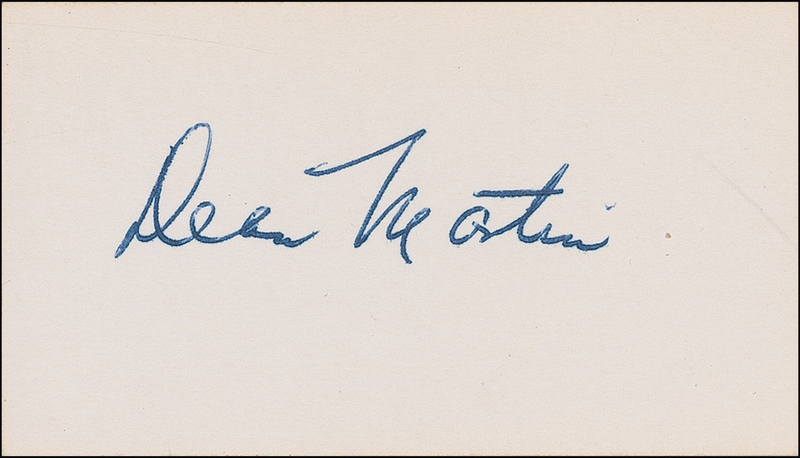 Dean Martin